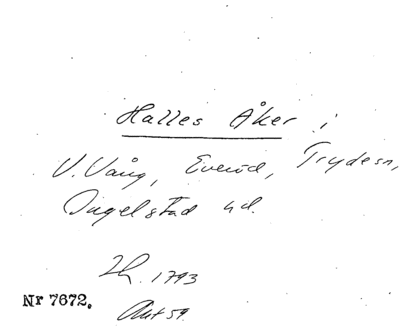 Halles Åker i
V. Vång, Everöd, Trydesn,
Ingelstad hd.
Lh. 1793
Nr 7672. Akt 59.